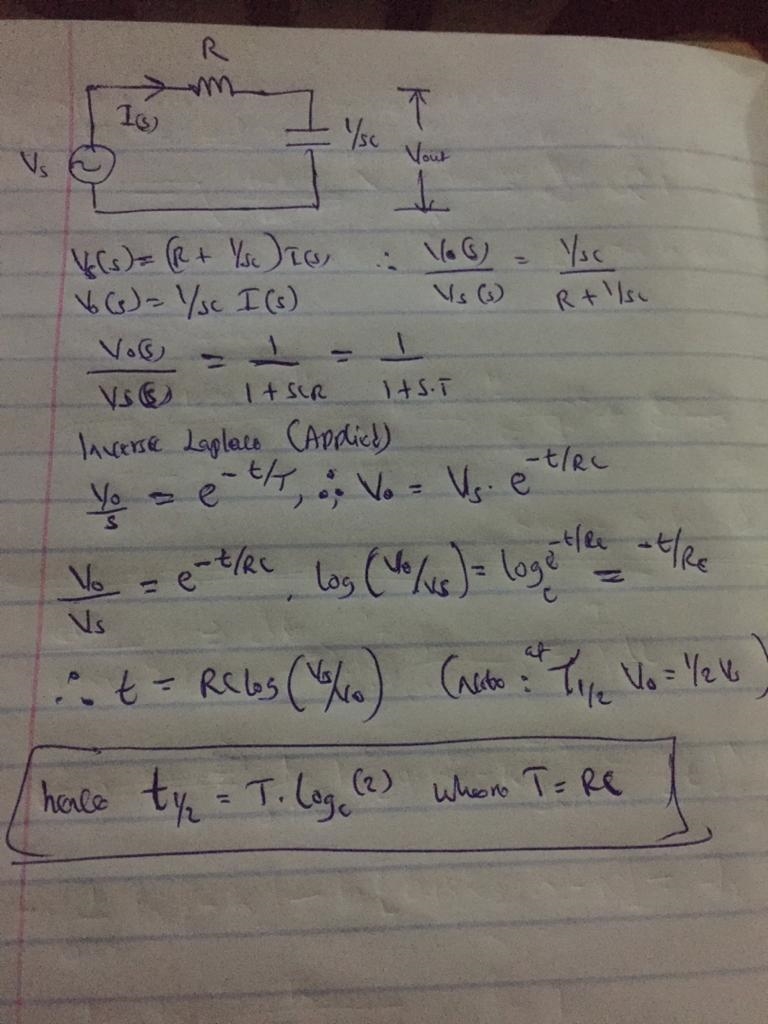 R
I(s)
1/sc
Vs
Vout
Vs(s) = (R + 1/sc) I(s) ∴ Vo(s)/Vs(s) = (1/sc)/(R + 1/sc)
Vo(s) = 1/sc I(s)
Vo(s)/Vs(s) = 1/(1 + SCR) = 1/(1 + S.T)
Inverse Laplace (Applied)
Vo/s = e^(-t/T), ∴ Vo = Vs. e^(-t/RC)
Vo/Vs = e^(-t/RC), log(Vo/Vs) = log_e e^(-t/RC) = -t/RC
∴ t = RC log(Vs/Vo) (Note: at T_1/2 Vo = 1/2 Vs)
hence t_1/2 = T. Log_e(2) where T = RC